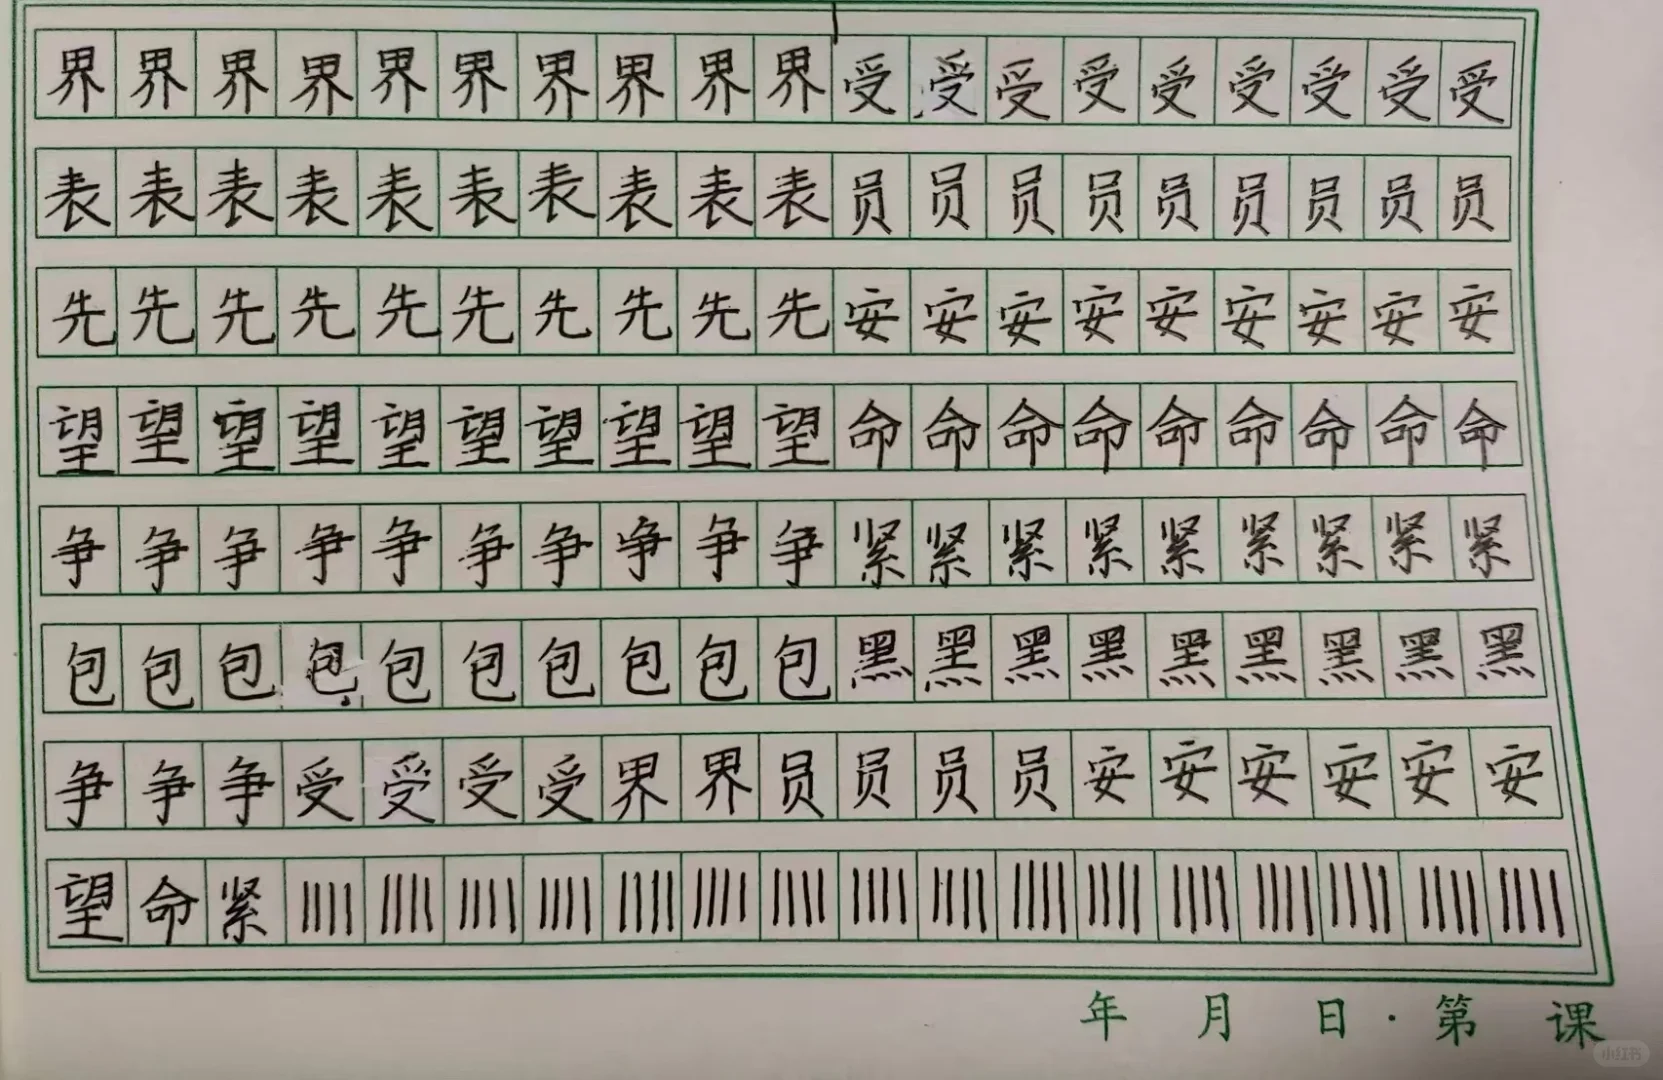 界界界界界界界界界界受受受受受受受受受
表表表表表表表表表表员员员员员员员员员
先先先先先先先先先先安安安安安安安安安
望望望望望望望望望望命命命命命命命命命
争争争争争争争争争争紧紧紧紧紧紧紧紧紧
包包包包包包包包包包黑黑黑黑黑黑黑黑黑
争争争受受受受界界员员员员安安安安安安
望命紧
年 月 日·第 课
小红书